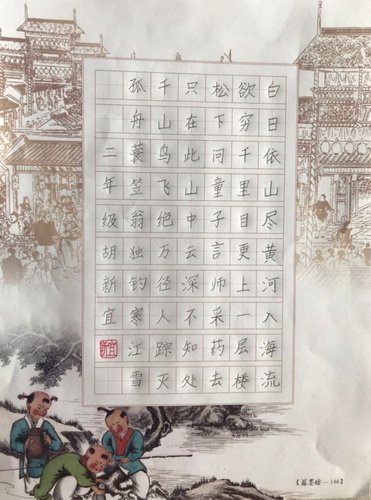 白日依山尽黄河入海流
欲穷千里目更上一层楼
松下问童子言师采药去
只在此山中云深不知处
千山鸟飞绝万径人踪灭
孤舟蓑笠翁独钓寒江雪
二年级胡新宜